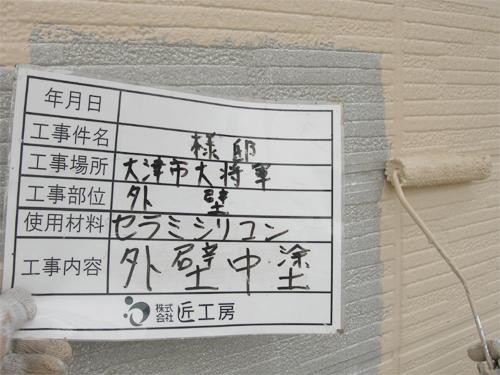 年月日
工事件名 様邸
工事場所 大津市大将軍
工事部位 外 壁
使用材料 セラミシリコン
工事内容 外壁中塗
株式会社 匠工房